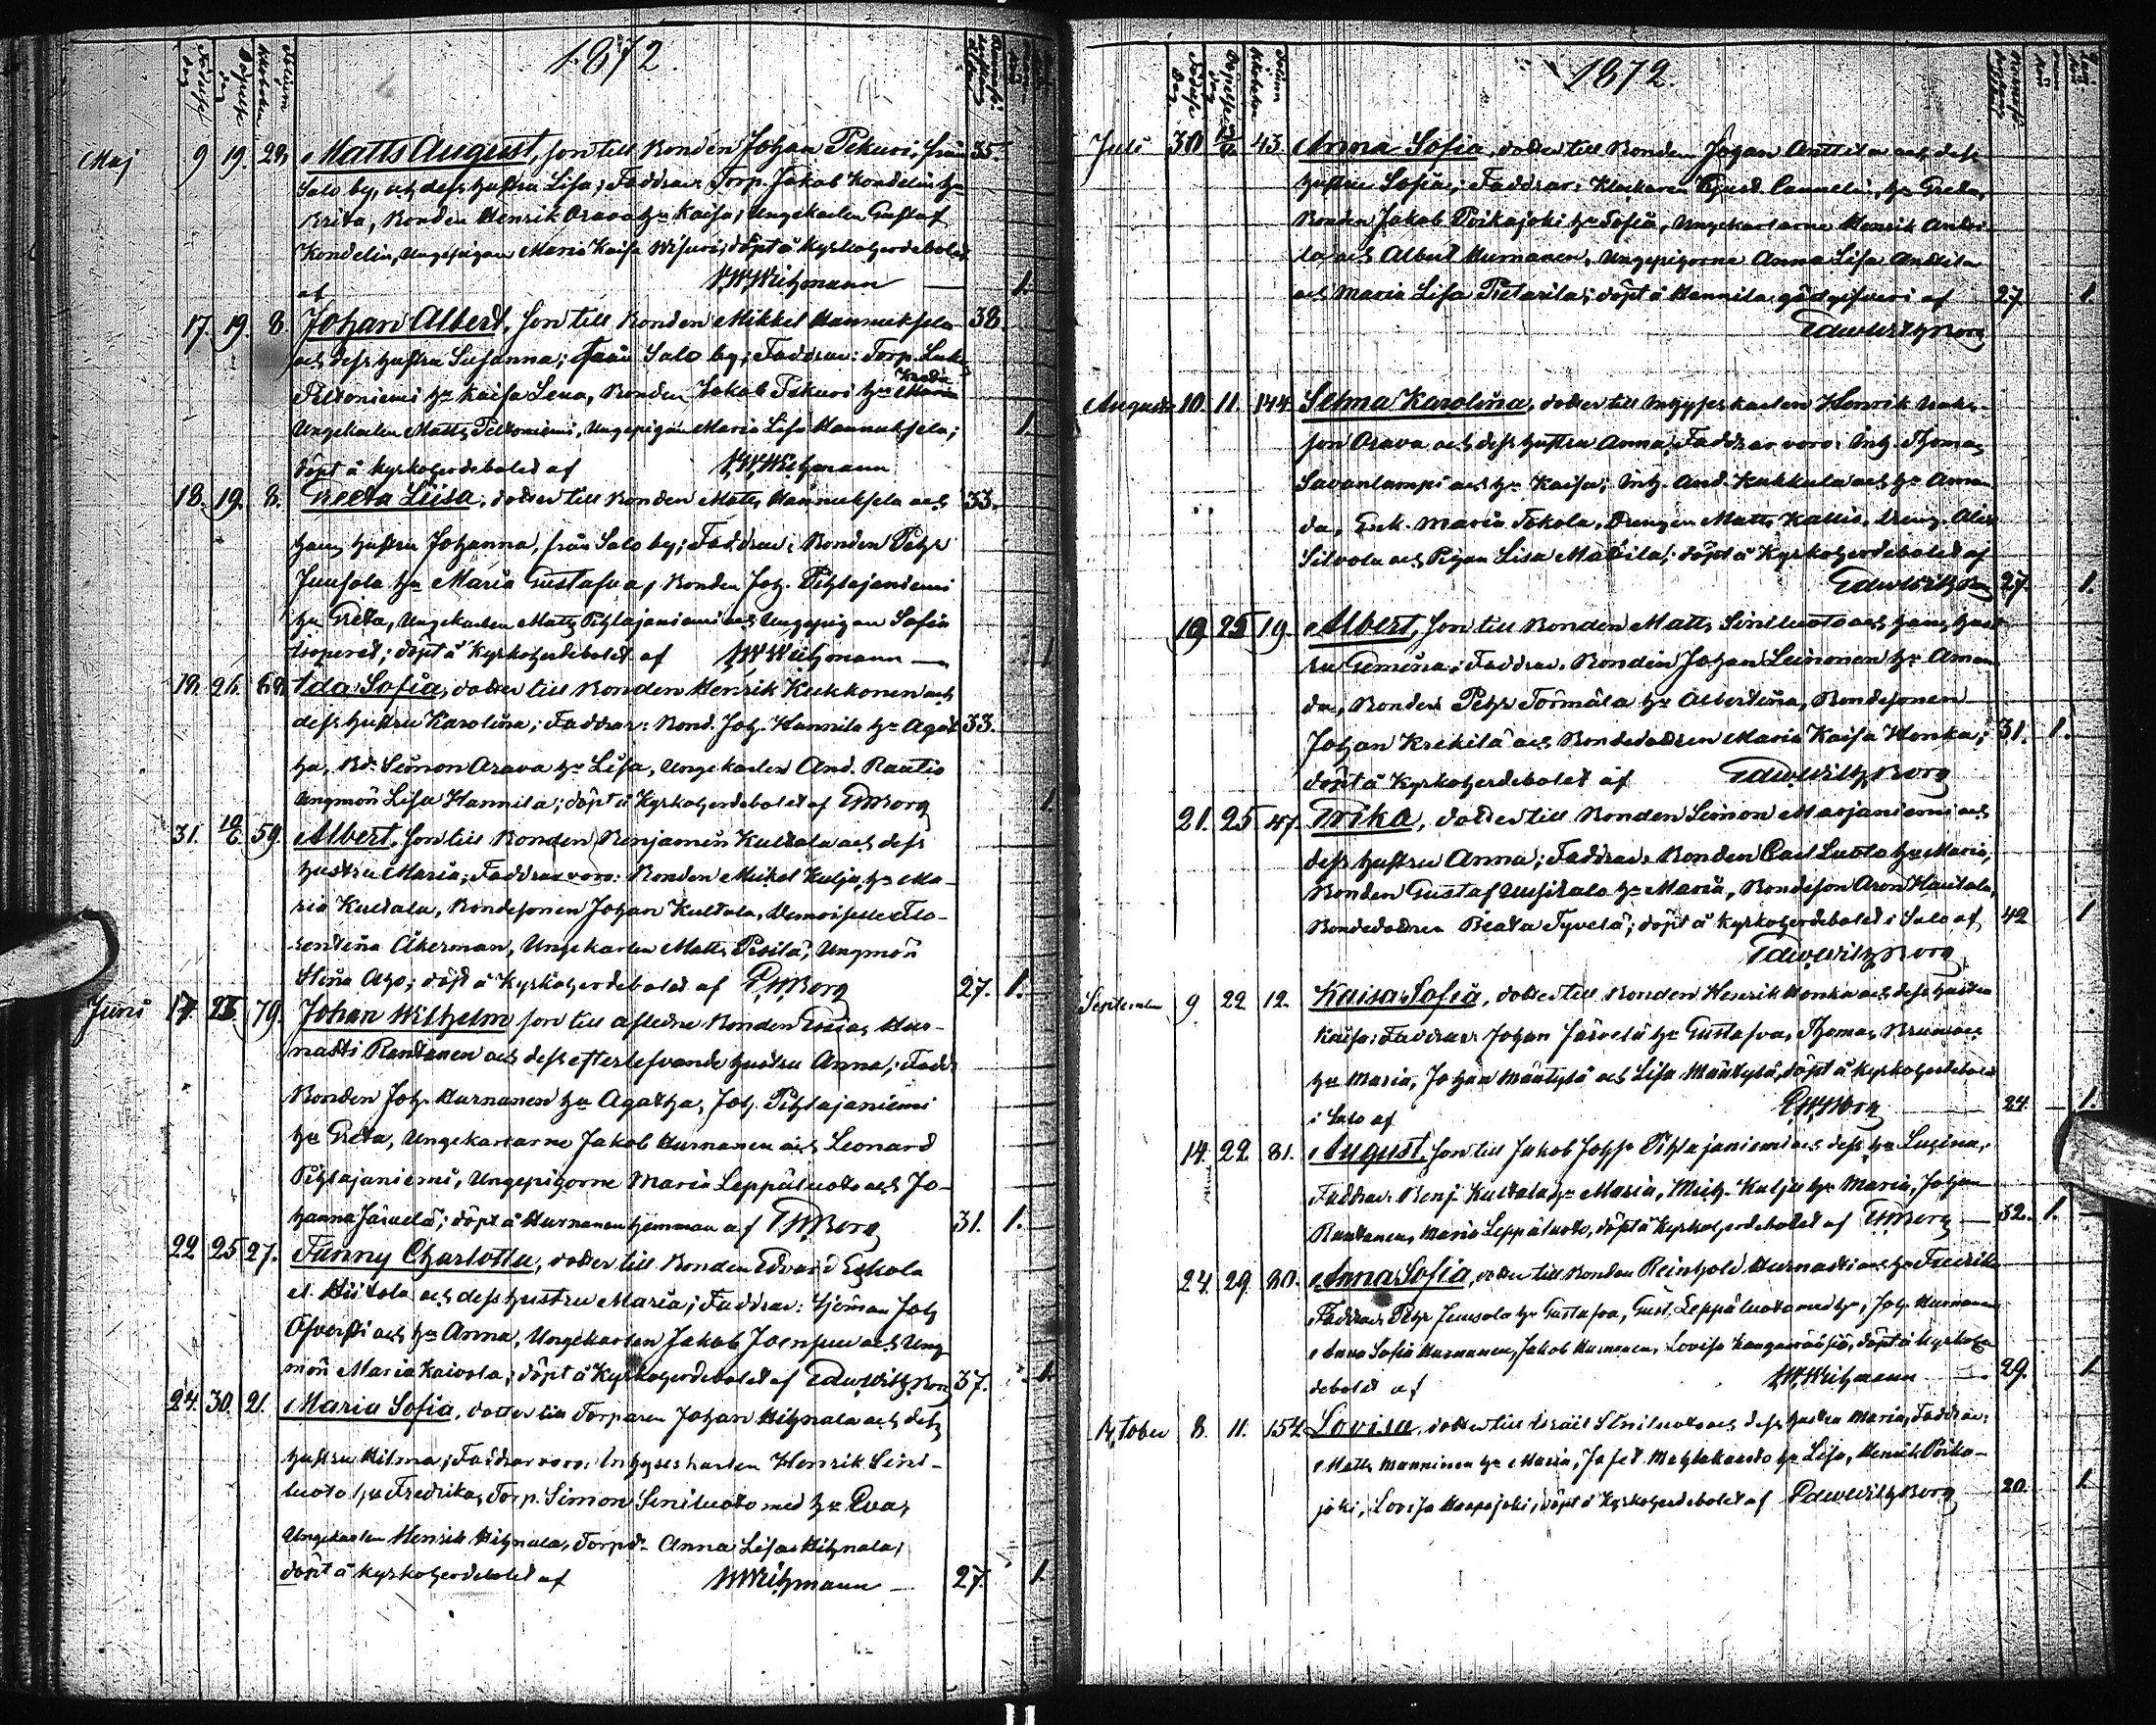 1872
Maj 9 19. 29. Matts August, son till Bonden Johan Pekuri, från 35.
Salo by, och dess hustru Lisa; Faddrar: Torp. Jakob Kondelin hu
Brita, Bonden Henrik Orava hu Kaisa, Ungekarlen Gustaf
Kondelin, Ungepigan Maria Kaisa; döpt å Kyrkoherdebolet
af Weitzmann 1.
17. 19. 8. Johan Albert, son till Bonden Mikkel Hannuksela 38.
och dess hustru Susanna; från Salo by; Faddrar: Torp.
Peltoniemi hu Kaisa Lena, Bonden Jakob Pekuri hu
Ungekarlen Matts Peltoniemi, Ungepigan Maria Lisa Hannuksela; 1.
döpt å Kyrkoherdebolet af Weitzmann
18. 19. 8. Greeta Liisa, dotter till Bonden Matts Hannuksela och 33.
hans hustru Johanna, från Salo by; Faddrar: Bonden Pehr
Junsola hu Maria Gustafva, Bonden Joh. Pihlajaniemi
hu Greta, Ungekarlen Matts Pihlajaniemi och Ungepigan Sofia
döpt å Kyrkoherdebolet af Weitzmann 1
18. 26. 68. Ida Sofia, dotter till Bonden Henrik Kukkonen och
dess hustru Karolina; Faddrar: Bond. Joh. Hannila hu Agat 33.
ha, Bd. Simon Arava hu Lisa, Ungekarlen And. Rautio
Ungmön Lisa Hannila; döpt å Kyrkoherdebolet af EWBorg 1
31. 10/6. 59. Albert, son till Bonden Benjamin Kultala och dess
hustru Maria; Faddrar voro: Bonden Mikel Kulju, hu Ma-
ria Kultala, Bondesonen Johan Kultala, Demoiselle Flo-
rentina Åkerman, Ungekarlen Matts Pesilä, Ungmön
Stina Aho; döpt å Kyrkoherdebolet af EWBorg 27. 1.
Juni 17. 79. Johan Wilhelm son till aflidne Bonden Esaias Hur-
nasti Rantanen och dess efterlefvande hustru Anna; Fadd.
Bonden Joh. Hurnanen hu Agatha, Joh. Pihlajaniemi
hu Greta, Ungekarlarne Jakob Hurnanen och Leonard
Pihlajaniemi, Ungepigorne Maria Leppäluoto och Jo-
hanna Järvelä; döpt å Hurnanen hemman af EWBorg 31. 1.
22 25 27. Fanny Charlotta, dotter till Bonden Edvard Eskola
el. Hiitola och dess hustru Maria; Faddrar: Sjöman Joh
och hu Anna, Ungekarlen Jakob Joensuu och Ung-
mön Maria Kaivola; döpt å Kyrkoherdebolet af EdwWilhBorg 37. 1.
24. 30. 21. Maria Sofia, dotter till Torparen Johan Hihnala och dess
hustru Hilma; Faddrar voro: Inhyseskarlen Henrik Sini-
luoto hu Fredrika, Torp. Simon Siniluoto med hu Eva,
Ungekarlen Henrik Hihnala, Torpd. Anna Lisa Hihnala;
döpt å Kyrkoherdebolet af Weitzmann 27. 1.
1872.
Juli 30 43. Anna Sofia, dotter till Bonden Johan Anttila och dess
hustru Sofia; Faddrar: Klockaren Cannelin, hu Greta,
Bonden Jakob Poikajoki hu Sofia, Ungekarlarne Henrik Antti-
la och Albert Hurnanen, Ungepigorne Anna Lisa Anttila
och Maria Lisa Pietarila; döpt å Hannila gästgifveri af 27. 1.
EdwWilhBorg
Augusti 10. 11. 144. Selma Karolina, dotter till Inhyseskarlen Henrik
son Orava och dess hustru Anna; Faddrar voro: Inh. Thomas
Savonlampi och hu Kaisa; Inh. And. Kukkula och hu Aman-
da, Enk. Maria Tokola, Drengen Matts Kallio, Dreng.
Silvola och Pigan Lisa Mattila; döpt å Kyrkoherdebolet af
EdwWilhBorg 27. 1.
19 25 19. Albert, son till Bonden Matts Siniluoto och hans hust-
ru Gemina; Faddrar: Bonden Johan Leinonen hu Aman-
da, Bonden Pehr Törmälä hu Albertina, Bondesonen
Johan Krekilä och Bondedottren Maria Kaisa Honka; 31. 1.
döpt å Kyrkoherdebolet af EdwWilhBorg
21. 25 47. Erika, dotter till Bonden Simon Marjaniemi och
dess hustru Anna; Faddrar: Bonden Carl Luoto hu Maria,
Bonden Gustaf Uusitalo hu Maria, Bondeson Aron Hautala,
Bondedottren Beata Tyvelä; döpt å Kyrkoherdebolet i Salo af 42 1
EdwWilhBorg
September 9. 22 12. Kaisa Sofia, dotter till Bonden Henrik Honka och dess hustru
Kaisa; Faddrar: Johan Järvelä hu Gustafva, Thomas
hu Maria, Johan Mäntylä och Lisa Mäntylä, döpt å Kyrkoherdebolet
i Salo af EWBorg 24. 1.
14. 22 81. August, son till Jakob Johss Pihlajaniemi och dess hu Lusina,
Faddrar: Benj. Kultala hu Maria, Mich. Kulju hu Maria, Johan
Rantanen, Maria Leppäluoto, döpt å Kyrkoherdebolet af EWBorg 32. 1.
24. 29. 80. Anna Sofia, dotter till Bonden Reinhold Hurnasti och hu Fredrika
Faddrar: Pehr Junsola hu Gustafva, Gust. Leppäluoto med hu, Joh. Hurnanen
Anna Sofia Hurnanen, Jakob Hurnanen, Lovisa döpt å Kyrkoher-
debolet af Weitzmann 29. 1
October 8. 11. 154 Lovisa, dotter till Israel Siniluoto och dess hustru Maria, Faddrar:
Matts Manninen hu Maria, Jafet hu Lisa, Henrik Poika-
joki, Lovisa Haapajoki; döpt å Kyrkoherdebolet af EdwWilhBorg 20. 1.